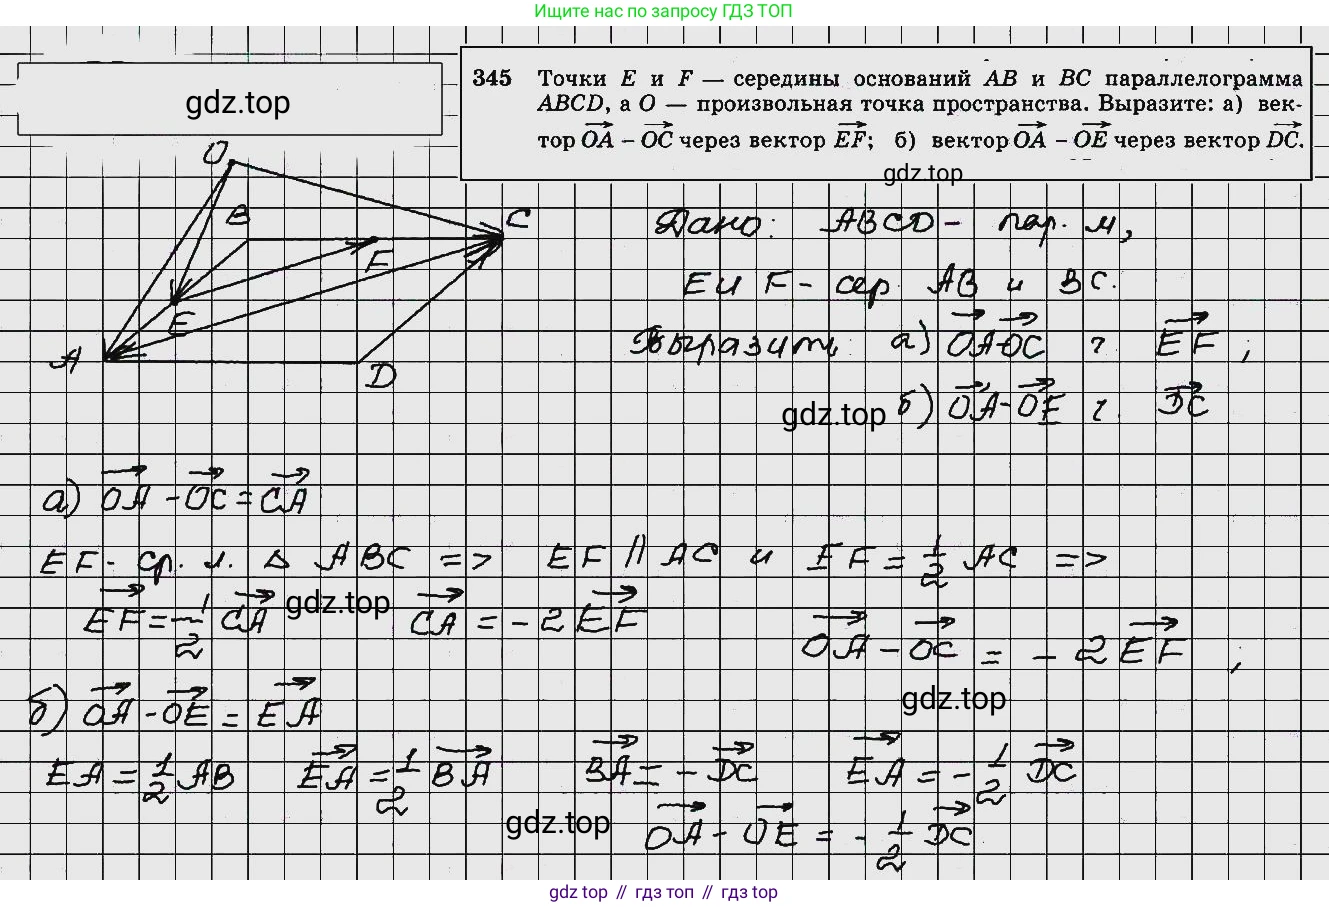 Ищите нас по запросу ГДЗ ТОП
gdz.top
345 Точки E и F — середины оснований AB и BC параллелограмма
ABCD, а O — произвольная точка пространства. Выразите: а) век-
тор OA⃗ – OC⃗ через вектор EF⃗; б) вектор OA⃗ – OE⃗ через вектор DC⃗.
gdz.top
O
B
C
F
E
A
D
Дано: ABCD – пар. м,
E и F – сер. AB и BC.
Выразить: а) OA⃗-OC⃗ ч EF⃗;
gdz.top
б) OA⃗-OE⃗ ч. DC⃗
а) OA⃗ - OC⃗ = CA⃗
EF - ср. л. Δ ABC => EF || AC и EF = 1/2 AC =>
EF⃗ = -1/2 CA⃗ gdz.top CA⃗ = -2 EF⃗ OA⃗ - OC⃗ = -2 EF⃗;
gdz.top
б) OA⃗ - OE⃗ = EA⃗
EA = 1/2 AB EA⃗ = 1/2 BA⃗ BA⃗ = -DC⃗ EA⃗ = -1/2 DC⃗
gdz.top OA⃗ - OE⃗ = -1/2 DC⃗
gdz top // гдз топ // gdz top